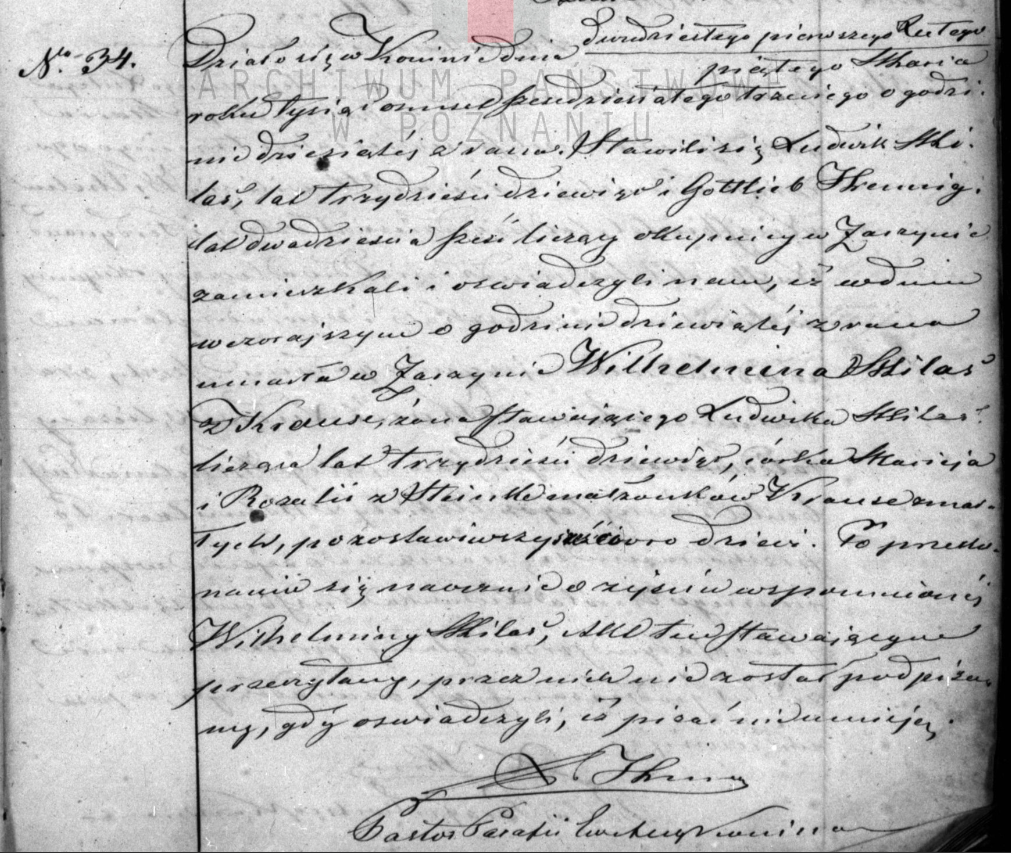 No. 34.
Działo się w Koninie dnia dwudziestego pierwszego Lutego
piątego Marca
ARCHIWUM PAŃSTWOWE
W POZNANIU
roku tysiąc ośmset sześdziesiątego trzeciego o godzi-
nie dziesiątej z rana. Stawili się Ludwik Mi-
las, lat trzydzieści dziewięć i Gottlieb Hennig
lat dwadzieścia sześć liczący okupnicy w Zarzynie
zamieszkali i oświadczyli nam, iż w dniu
wczorajszym o godzinie dziewiątej z rana
umarła w Zarzynie Wilhelmina Milas
z Krause, żona stawającego Ludwika Milas
licząca lat trzydzieści dziewięć, córka Macieja
i Rozalii z Steinke małżonków Krause zmar-
łych, pozostawiwszy dzieci. Po przeko-
naniu się naocznie o zejściu wspomnionej
Wilhelminy Milas, Akt ten stawającym
przeczytany, przez nich nie został podpisa-
ny, gdy oświadczyli, iż pisać nie umieją.
Pastor Parafii Ewang Konina